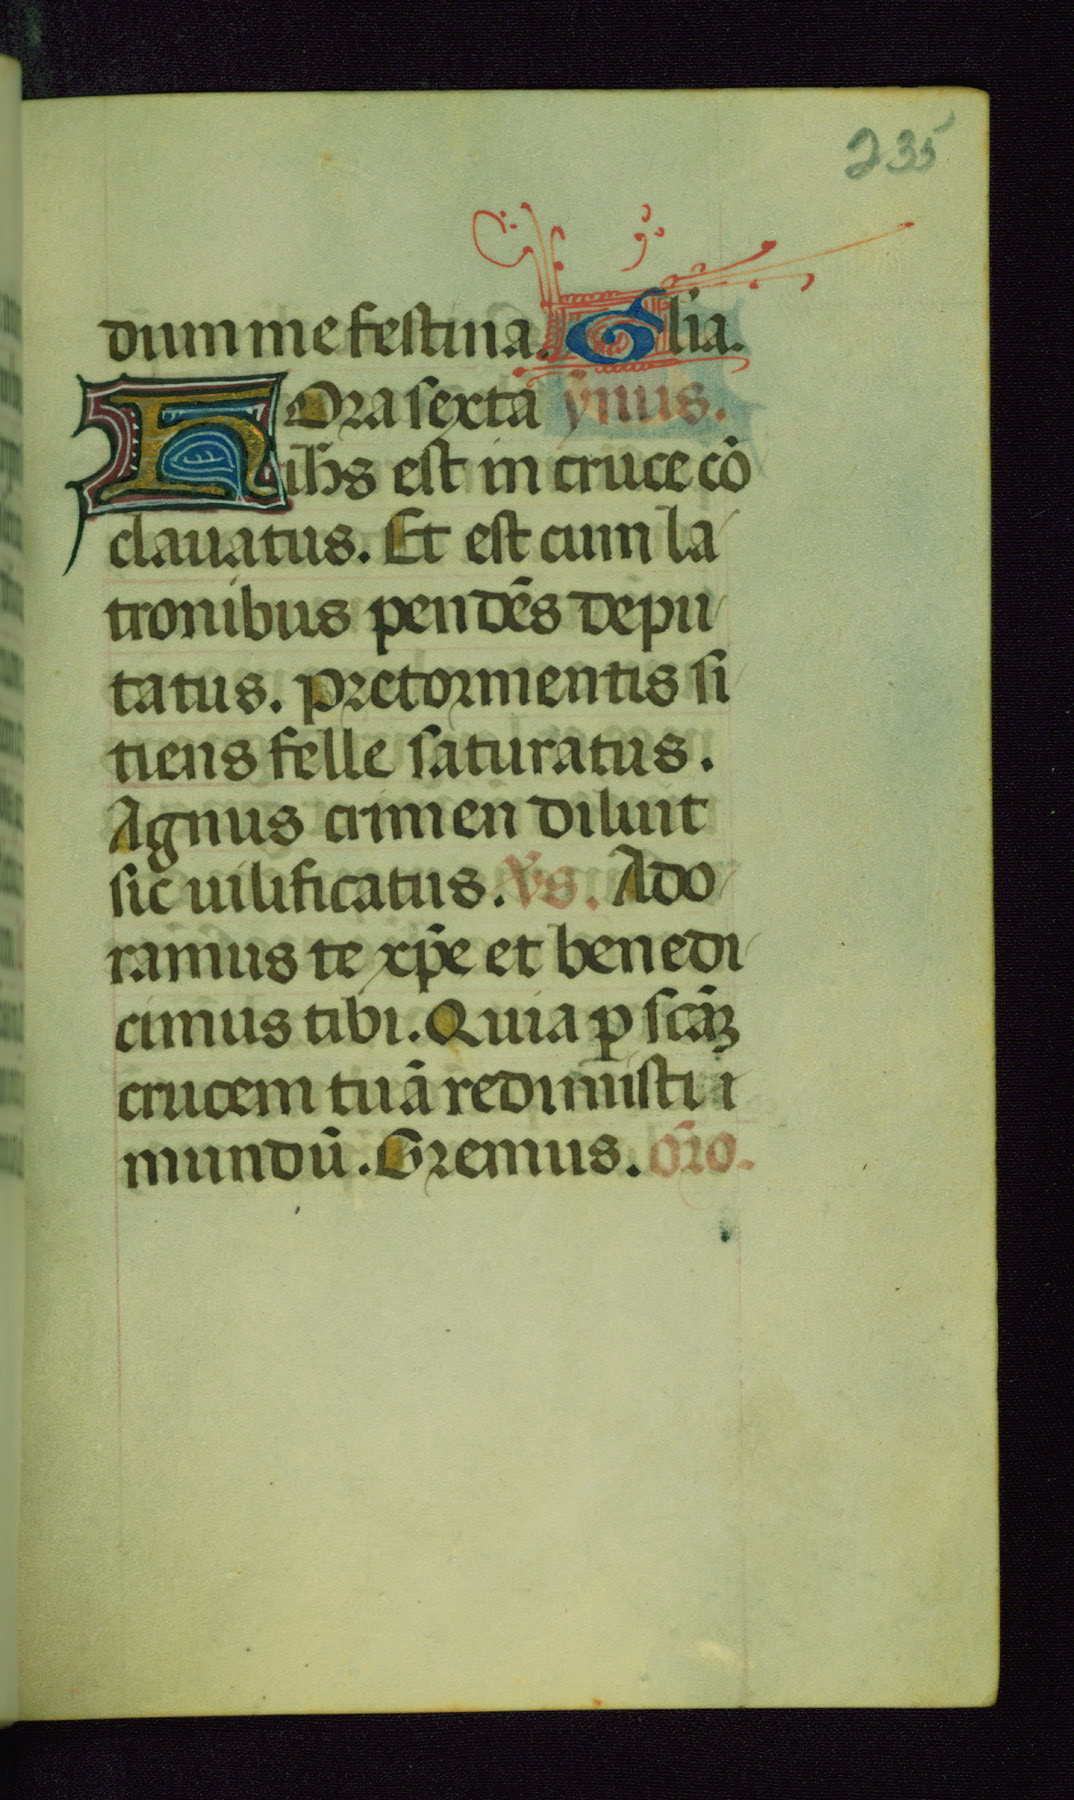 235
dium me festina. Glia.
Hora sexta ỹnus.
ihs est in cruce cõ
clauatus. Et est cum la
tronibus pendẽs depu
tatus. pretormentis si
tiens felle saturatus.
Agnus crimen diluit
sic uilificatus. v̄s. Ado
ramus te xp̃e et benedi
cimus tibi. Quia ꝑ scãꝫ
crucem tuã redimisti
mundũ. Oremus. õro.